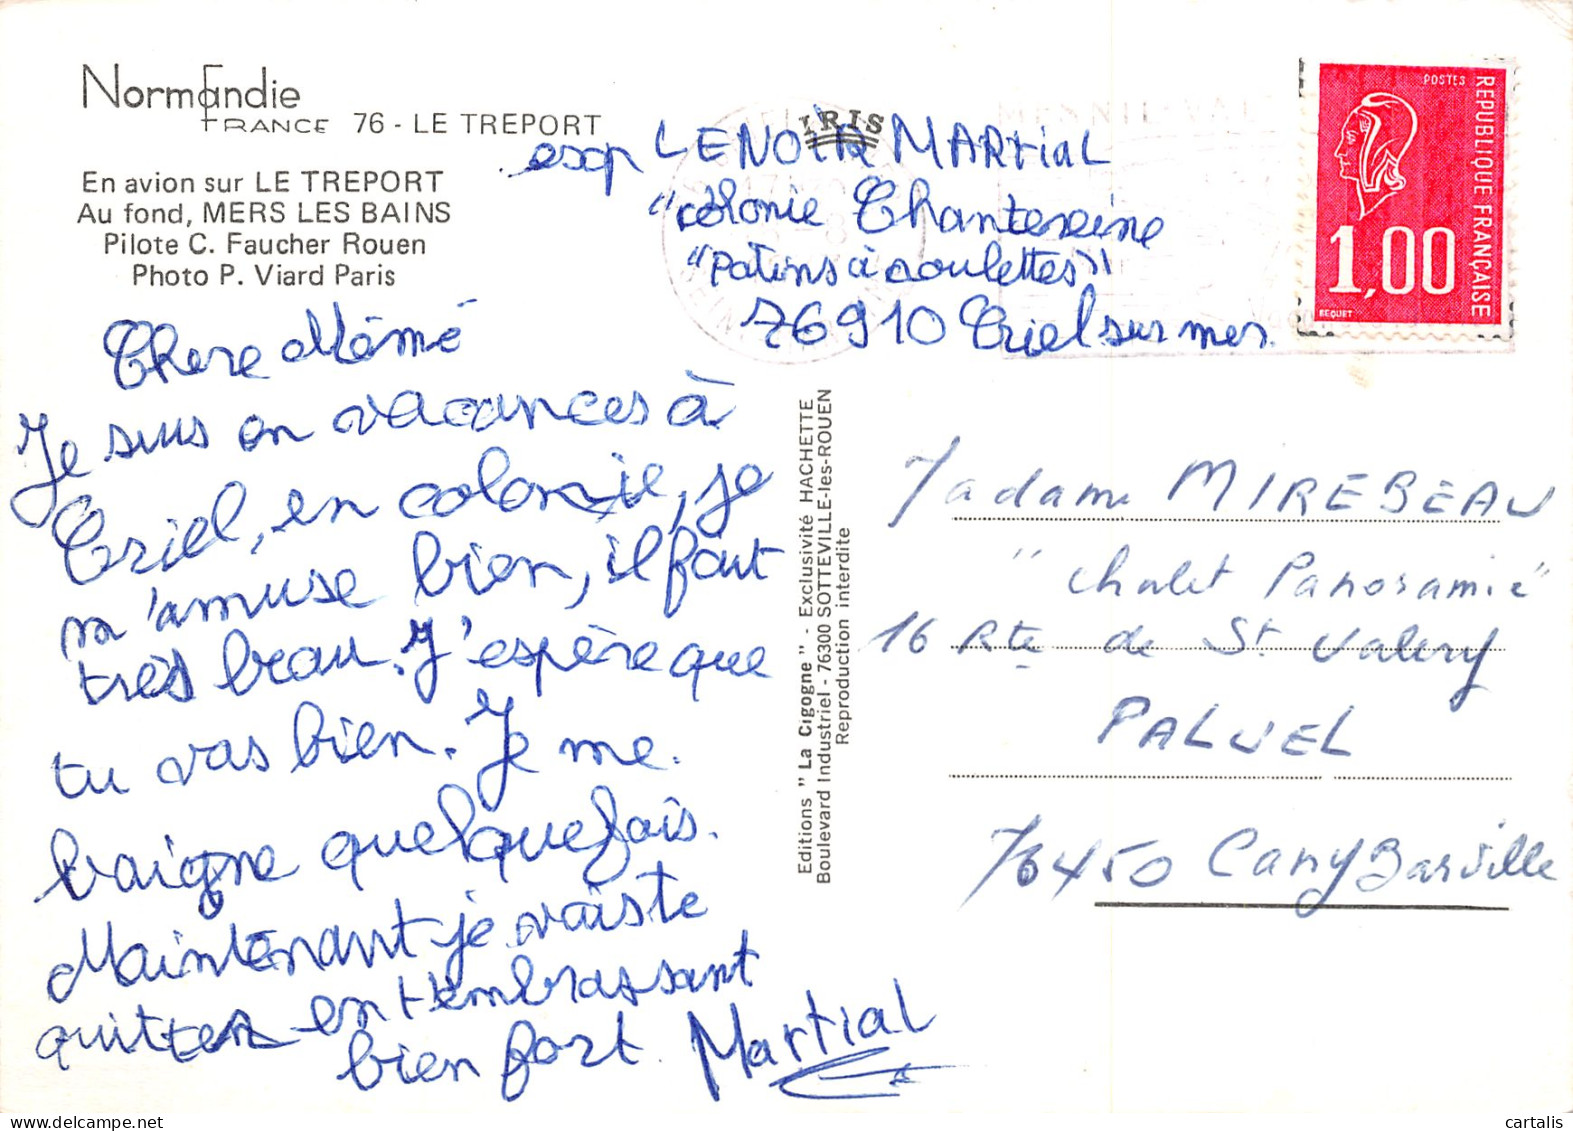 Normandie
FRANCE 76 - LE TREPORT
En avion sur LE TREPORT
Au fond, MERS LES BAINS
Pilote C. Faucher Rouen
Photo P. Viard Paris
IRIS
MESNIL-VAL
exp LENOIR MARTiaL
"colonie Chantereine
"Patins à roulettes"
76910 Criel sur mer.
POSTES
REPUBLIQUE FRANÇAISE
1,00
BEQUET
Chere Mémé
Je suis en vacances à
Criel, en colonie, je
m'amuse bien, il fait
très beau. J'espère que
tu vas bien. Je me
baigne quelquefois.
Maintenant je vais te
quitter en t'embrassant
bien fort. Martial
Editions "La Cigogne" - Exclusivité HACHETTE
Boulevard Industriel - 76300 SOTTEVILLE-les-ROUEN
Reproduction interdite
Madame MIREBEAU
"chalet Panoramic"
16 Rte de St Valery
PALUEL
76450 Cany Barville
cartalis